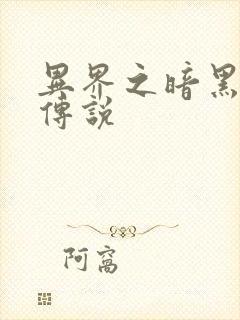 異界之暗黑
傳說
阿窩